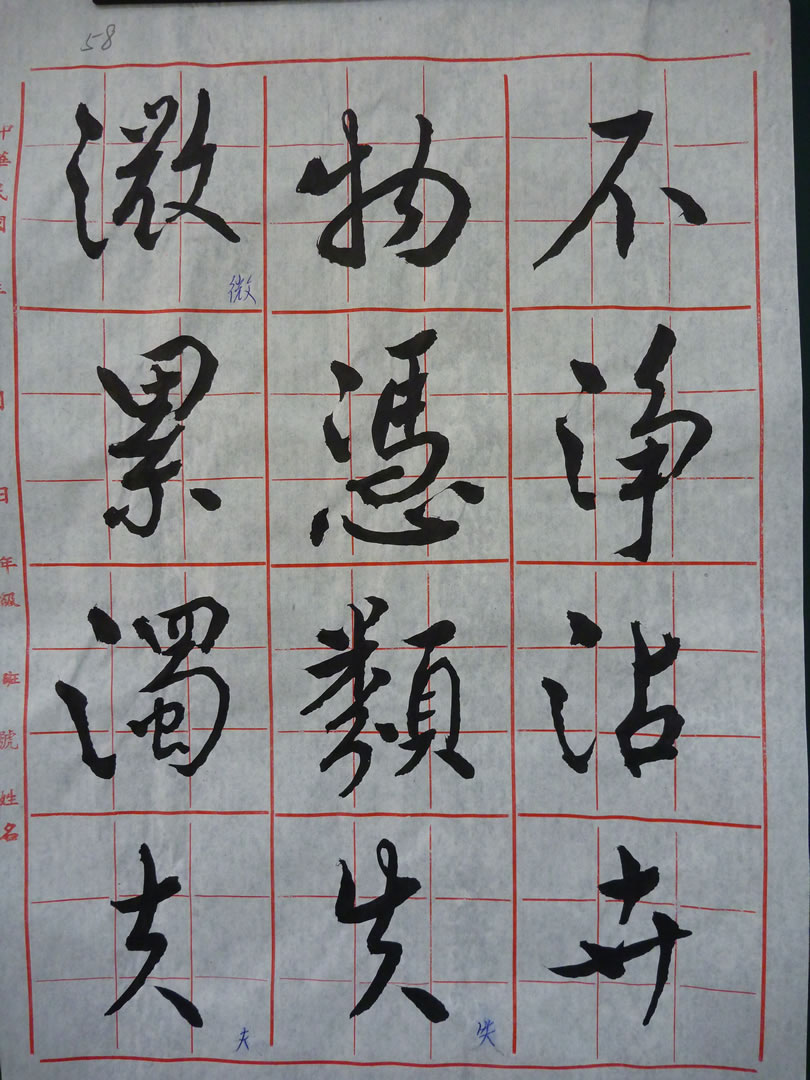 58
微物不
微
累憑淨
濁類沾
夫失卉
夫
失
中華民國 年 月 日 年級 班 號 姓名